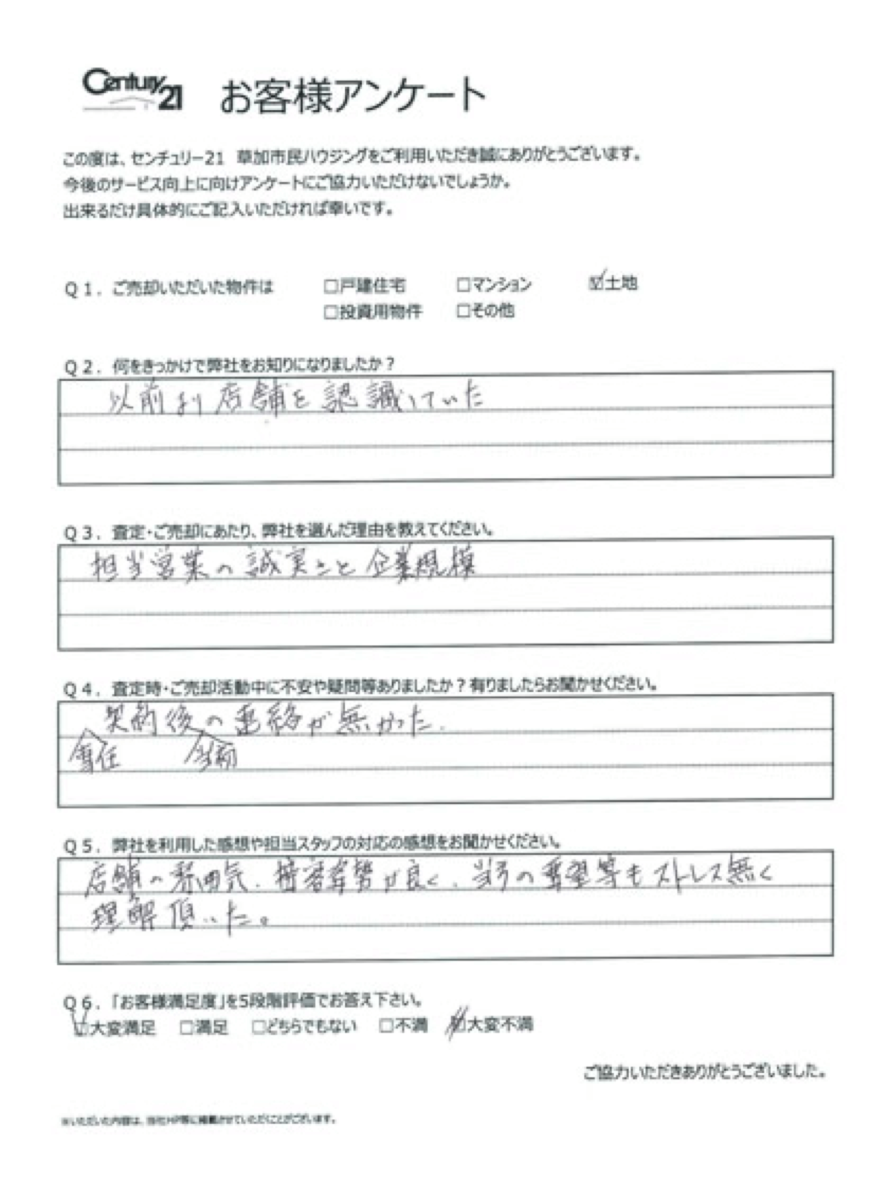 Century 21 お客様アンケート
この度は、センチュリー21 草加市民ハウジングをご利用いただき誠にありがとうございます。
今後のサービス向上に向けアンケートにご協力いただけないでしょうか。
出来るだけ具体的にご記入いただければ幸いです。
Q1．ご売却いただいた物件は □戸建住宅 □マンション ☑土地
□投資用物件 □その他
Q2．何をきっかけで弊社をお知りになりましたか？
以前より店舗を認識していた
Q3．査定・ご売却にあたり、弊社を選んだ理由を教えてください。
担当営業の誠実さと企業規模
Q4．査定時・ご売却活動中に不安や疑問等ありましたか？有りましたらお聞かせください。
契約後の連絡が無かった.
専任 当初
Q5．弊社を利用した感想や担当スタッフの対応の感想をお聞かせください。
店舗の雰囲気、接客姿勢が良く、当方の要望等もストレス無く
理解頂いた。
Q6．「お客様満足度」を5段階評価でお答え下さい。
☑大変満足 □満足 □どちらでもない □不満 □大変不満
ご協力いただきありがとうございました。
※いただいた内容は、当社HP等に掲載させていただくことがございます。